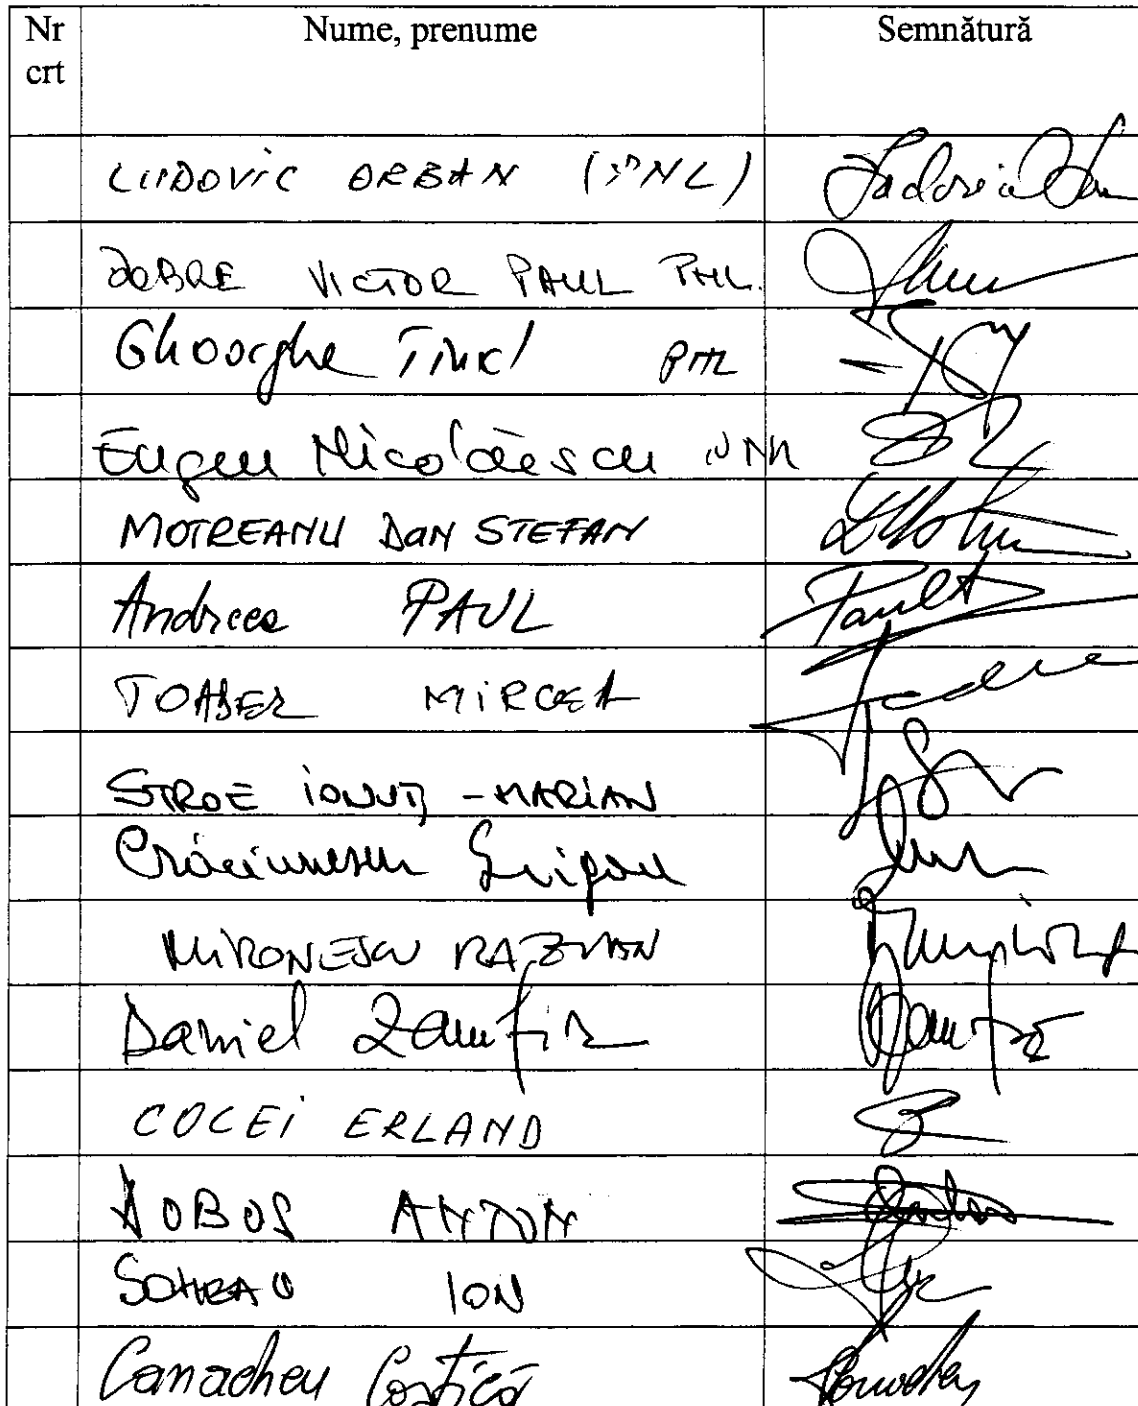 Nr crt Nume, prenume Semnătură
LUDOVIC ORBAN (PNL)
DOBRE VICTOR PAUL PNL.
Gheorghe PNL
Eugen Nicolăescu PNL
MOTREANU DAN STEFAN
Andreea PAUL
TOADER MIRCEA
STROE IONUȚ - MARIAN
Crăciunescu Grigore
MIRONESCU RAZVAN
Daniel Zamfir
COCEI ERLAND
DOBOS ANTON
ION
Canacheu Costică